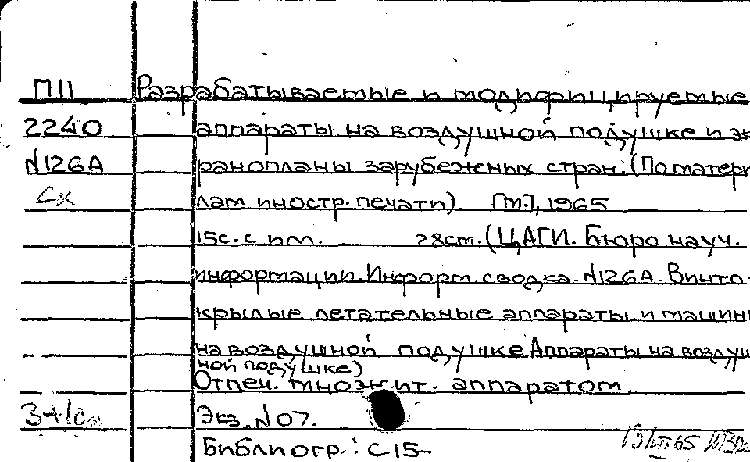 П11 Разрабатываемые и модифицируемые
2240 аппараты на воздушной подушке и эк
N126А ранопланы зарубежных стран. (По матери
лам иностр. печати). [М.], 1965
15с. с илл. 28см. (ЦАГИ. Бюро науч.
информации. Информ. сводка N126А. Винто-
крылые летательные аппараты и машины
на воздушной подушке. Аппараты на воздуш
ной подушке)
Отпеч. множит. аппаратом.
Экз. N07.
Библиогр.: С 15